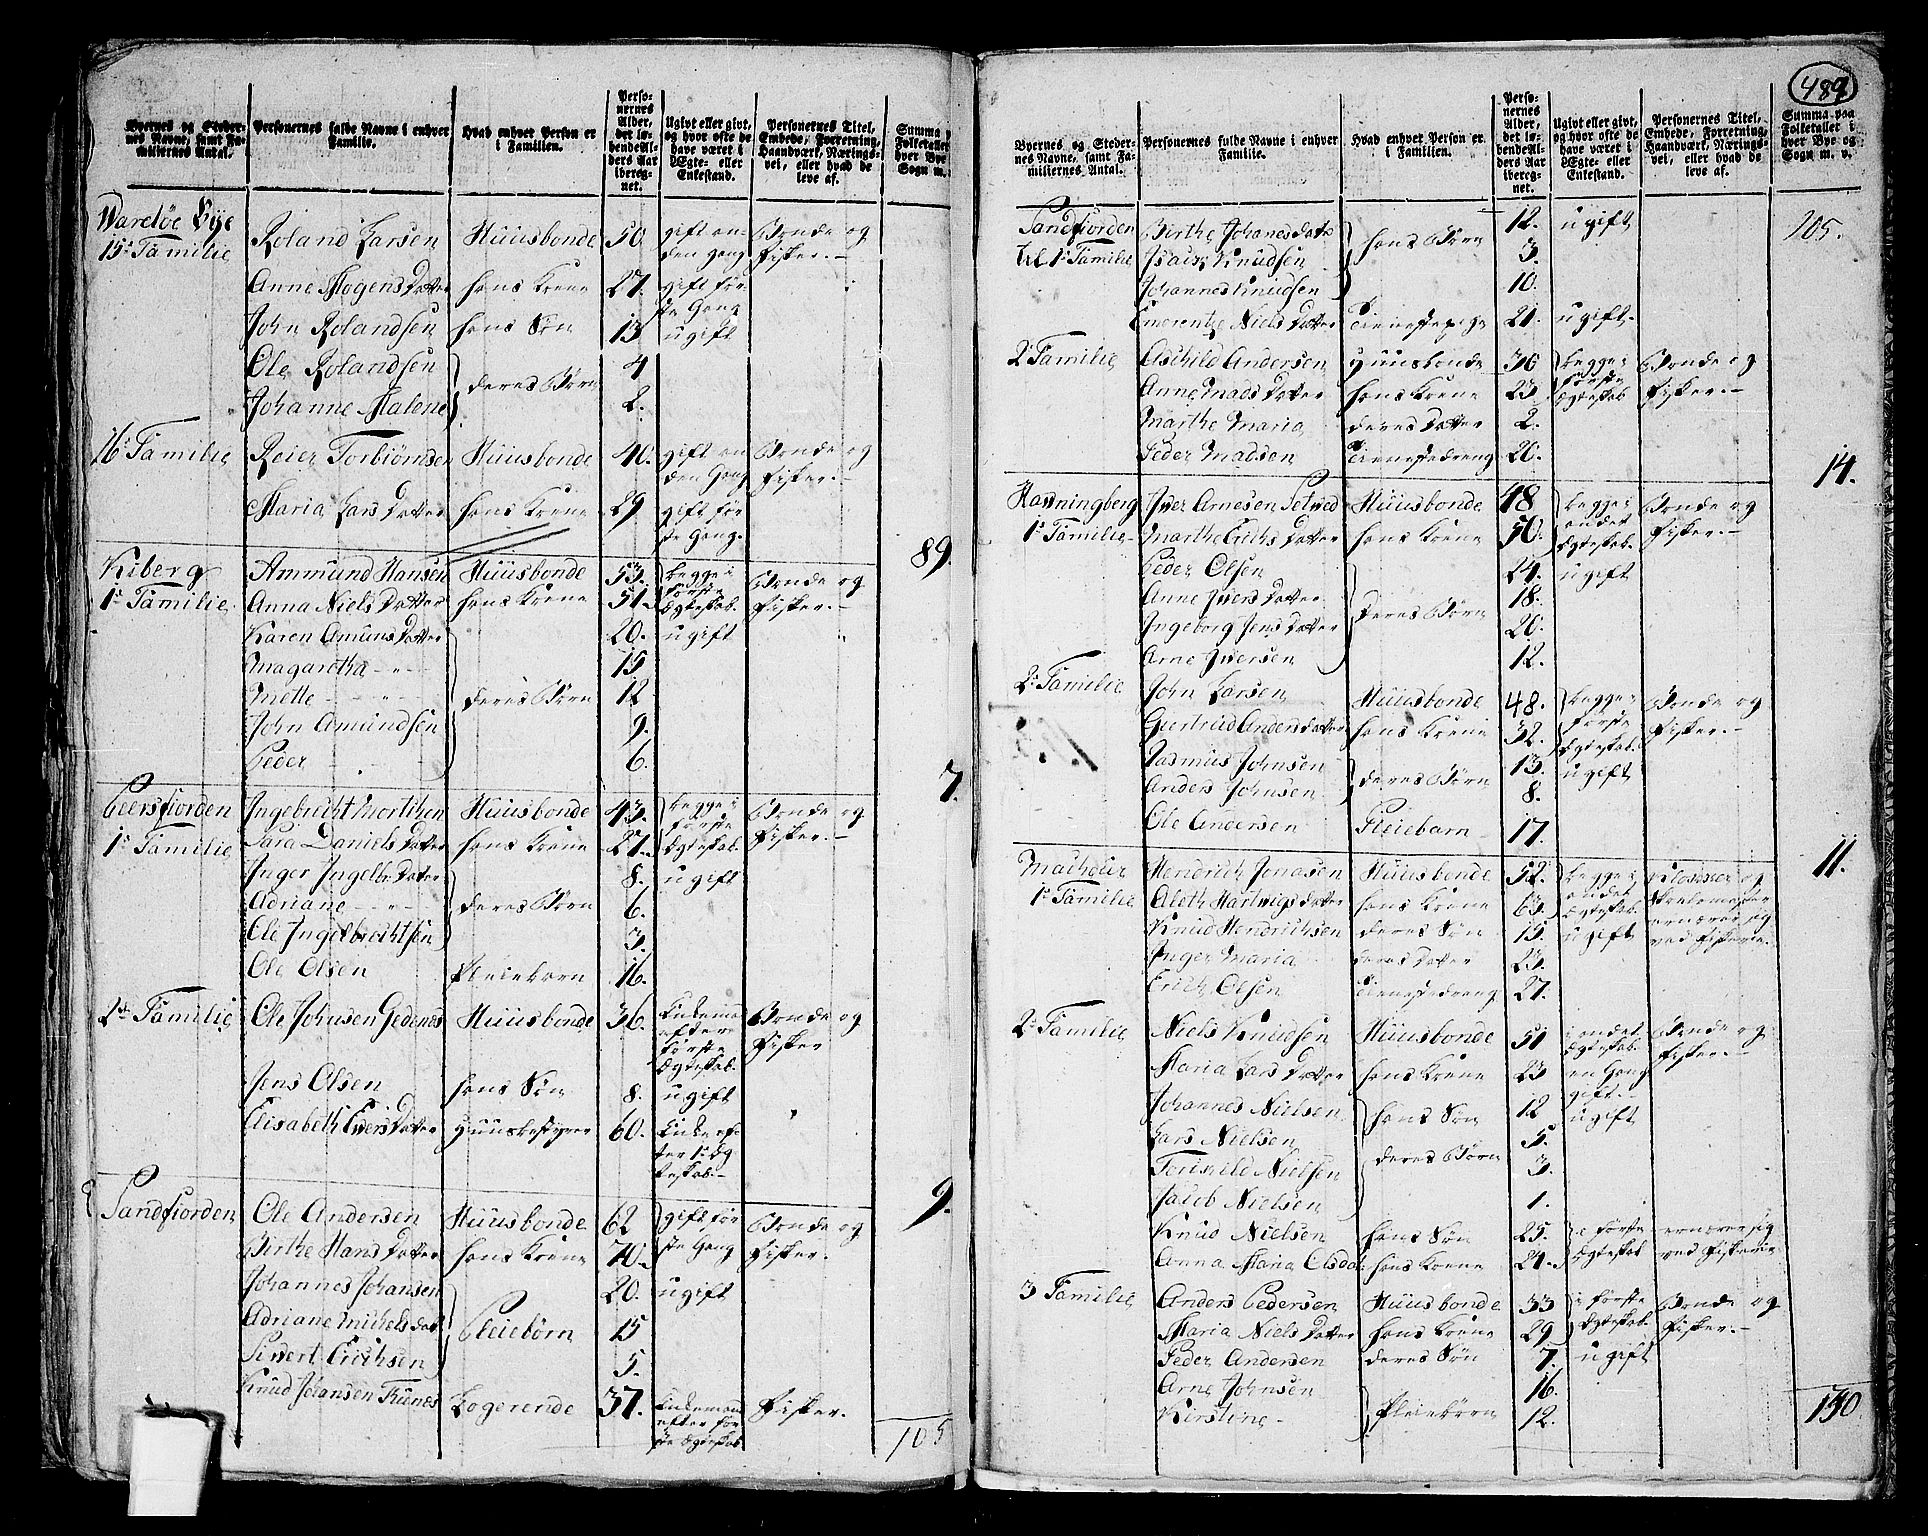 489.
Byernes og Steder-
nes Navne, samt Fa-
miliernes Antal.
Personernes fulde Navne i enhver
Familie.
Hvad enhver Person er
i Familien.
Perso-
nernes
Alder,
det lø-
bende Al-
ders Aar
iberegnet.
Ugivt eller givt,
og hvor ofte de
have været i
Ægte- eller
Enkestand.
Personernes Titel,
Embede, Forretning,
Haandværk, Nærings-
vei, eller hvad de
leve af.
Wardøe Bÿe
15de Familie Roland Larsen Huusbonde 50 gift an- den Gang Bonde og Fisker.
Anne Mogens Datter hans Kone 27. gift før- ste Gang
John Rolandsen hans Søn 13 ugift
Ole Rolandsen deres Børn 4
Johanne Malene 2.
16 Familie Reier Torbiørnsen Huusbonde 40. gift an den Gang Bonde og Fisker.
Maria Lars Datter hans Kone 29 gift før ste Gang.
89.
Kiberg Ammund Hansen Huusbonde 53. begge i første Ægteskab. Bonde og Fisker.
1te Familie Anna Niels Datter hans Kone 51.
Karen Amuns Datter deres Børn 20. ugift
Magaretha 15
Mette 12
John Amundsen 9.
Peder 6.
7.
Peersfiorden Ingebricht Morthen Huusbonde 43. begge i første Ægteskab. Bonde og Fisker.
1te Familie Sara Daniels Datter hans Kone 27.
Inger Ingelbr. Datter deres Børn 8. ugift
Adriane 6.
Ole Ingelbrechtsen 3.
Ole Olsen Pleiebarn 16.
2den Familie Ole Johnsen Gedenes Huusbonde 36. Enkeman efter første Ægteskab. Bonde og Fisker
Jens Olsen hans Søn 8. ugift
Elisabeth Ivers Datter Huusbestyrer 60. Enke ef- ter 1te Æg- teskab.
9.
Sandfiorden Ole Andersen Huusbonde 62 gift før ste Gang Bonde og Fisker.
Birthe Hans Datter hans Kone 70.
Johannes Johansen Pleiebørn 20. ugift
Adriane Michels Dat 15
Sivert Erichsen 5.
Knud Johansen Logerende 37. Enkemand efter før ste Ægteskab Fisker.
105
Byernes og Steder-
nes Navne, samt Fa-
miliernes Antal.
Personernes fulde Navne i enhver
Familie.
Hvad enhver Person er
i Familien.
Perso-
nernes
Alder,
det lø-
bende Al-
ders Aar
iberegnet.
Ugivt eller givt,
og hvor ofte de
have været i
Ægte- eller
Enkestand.
Personernes Titel,
Embede, Forretning,
Haandværk, Nærings-
vei, eller hvad de
leve af.
Summa paa
Folketallet i
hver Bye og
Sogn m. v.
Sandfiorden Birthe Johanes Datr hans Børn 12. ugift 105.
til 1te Familie Isach Knudsen 3.
Johannes Knudsen 10.
Emorentze Niels Datter Tienestepige 21. ugift.
2. Familie Aschild Andersen Huusbonde 30 begge i første Ægteskab Bonde og Fisker.
Anne Mads Datter hans Kone 23
Marthe Maria deres Datter 2.
Peder Madsen Tienestedreng 20.
14.
Hawningberg Iver Arnesen Huusbonde 48 begge i andet Ægteskab. Bonde og Fisker.
1te Familie Marthe Erichs Datter hans Kone 50.
Peder Olsen deres Børn 24. ugift
Anne Ivers Datter 18.
Ingeborg Jens Datter 20.
Arne Iversen 12.
2. Familie John Larsen Huusbonde 48. begge i første Ægteskab. Bonde og Fisker.
Giertrud Anders Datter hans Kone 32.
Rasmus Johnsen deres Børn 13. ugift
Anders Johnsen 8.
Ole Andersen Pleiebarn 17.
11.
Hendrich Jonasen Huusbonde 52. begge i andet Ægteskab. Klokker og Skolemester ernærer sig ved Fiskerie.
1te Familie Aleth Hartvigs Datter hans Kone 63.
Knud Hendrichsen deres Søn 15. ugift
Inger Maria deres Datter 23.
Erich Olsen Tienestedreng 27.
2. Familie Niels Knudsen Huusbonde 51 i andet Ægteskab. Bonde og Fisker.
Maria Lars Datter hans Kone 23 en Gang gift.
Johannes Nielsen hans Søn 12 ugift
Lars Nielsen deres Børn 5.
Torskild Nielsen 3.
Jacob Nielsen 1.
Knud Nielsen hans Søn 25. i første Ægteskab ernærer sig ved Fiskerie
Anna Maria Olsdat hans Kone 24.
3 Familie Anders Pedersen Huusbonde 33 i første Ægteskab. Bonde og Fisker.
Maria Niels Datter hans Kone 29
Peder Andersen deres Søn 7. ugift
Arne Johnsen Pleiebørn 16.
Kirstine 12.
130